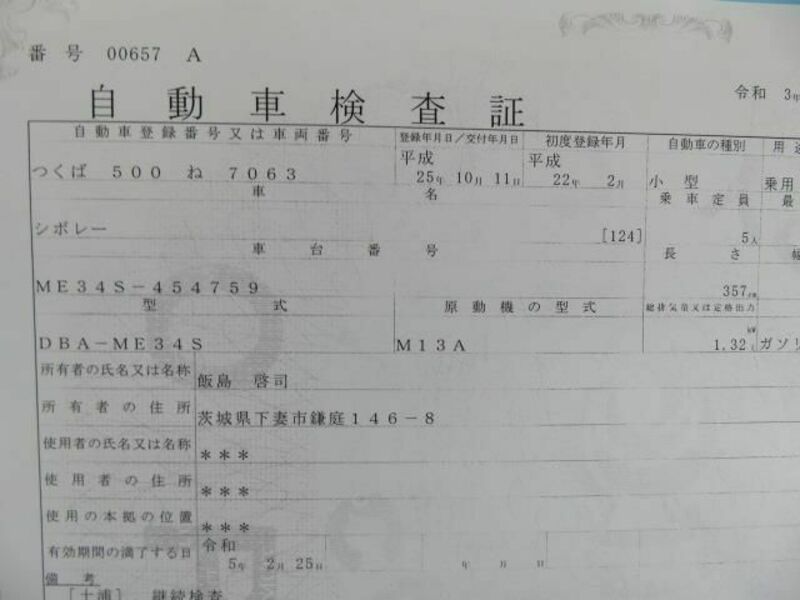 番号 00657 A
自動車検査証
令和 3年
自動車登録番号又は車両番号 登録年月日/交付年月日 初度登録年月 自動車の種別 用途
つくば 500 ね 7063 平成 25年 10月 11日 平成 22年 2月 小型 乗用
車名 乗車定員 最
シボレー [124] 5人
車台番号 長さ 幅
ME34S-454759 357cm
型式 原動機の型式 総排気量又は定格出力
DBA-ME34S M13A 1.32 kW L ガソリ
所有者の氏名又は名称 飯島 啓司
所有者の住所 茨城県下妻市鎌庭146-8
使用者の氏名又は名称 ***
使用者の住所 ***
使用の本拠の位置 ***
有効期間の満了する日 令和 5年 2月 25日 年 月 日
備考
[土浦] 継続検査